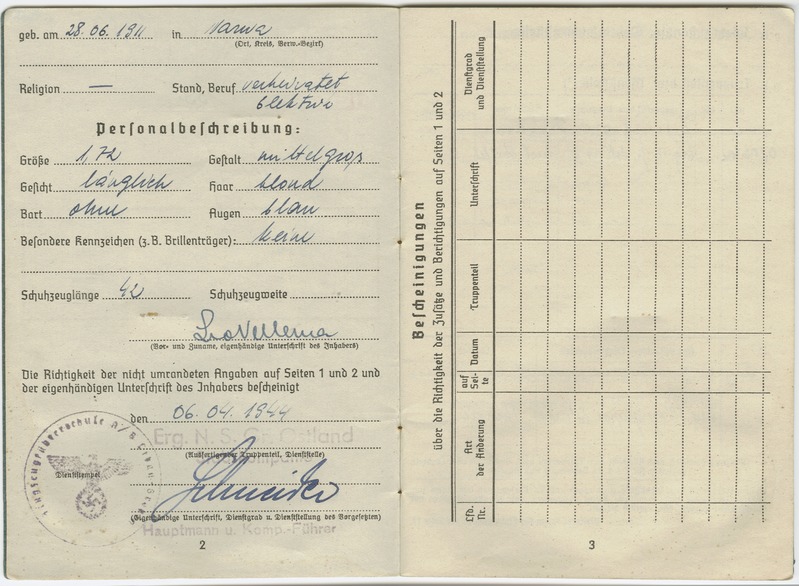 geb. am 28.06.1911 in Narwa
(Ort, Kreis, Verw.-Bezirk)
Religion — Stand, Beruf verheiratet
Personalbeschreibung:
Größe 1,72 Gestalt mittelgross
Gesicht länglich Haar blond
Bart ohne Augen blau
Besondere Kennzeichen (z. B. Brillenträger): keine
Schuhzeuglänge 42 Schuhzeugweite
(Vor- und Zuname, eigenhändige Unterschrift des Inhabers)
Die Richtigkeit der nicht umrandeten Angaben auf Seiten 1 und 2 und
der eigenhändigen Unterschrift des Inhabers bescheinigt
den 06.04.1944
Erg. N. S. G. Ostland
(Ausfertigender Truppenteil, Dienststelle)
Dienststempel
Schneider
(Eigenhändige Unterschrift, Dienstgrad u. Dienststellung des Vorgesetzten)
Hauptmann u. Komp.-Führer
2
Bescheinigungen
über die Richtigkeit der Zusätze und Berichtigungen auf Seiten 1 und 2
Lfd. Nr.
Art der Änderung
auf Sei-te
Datum
Truppenteil
Unterschrift
Dienstgrad und Dienststellung
3